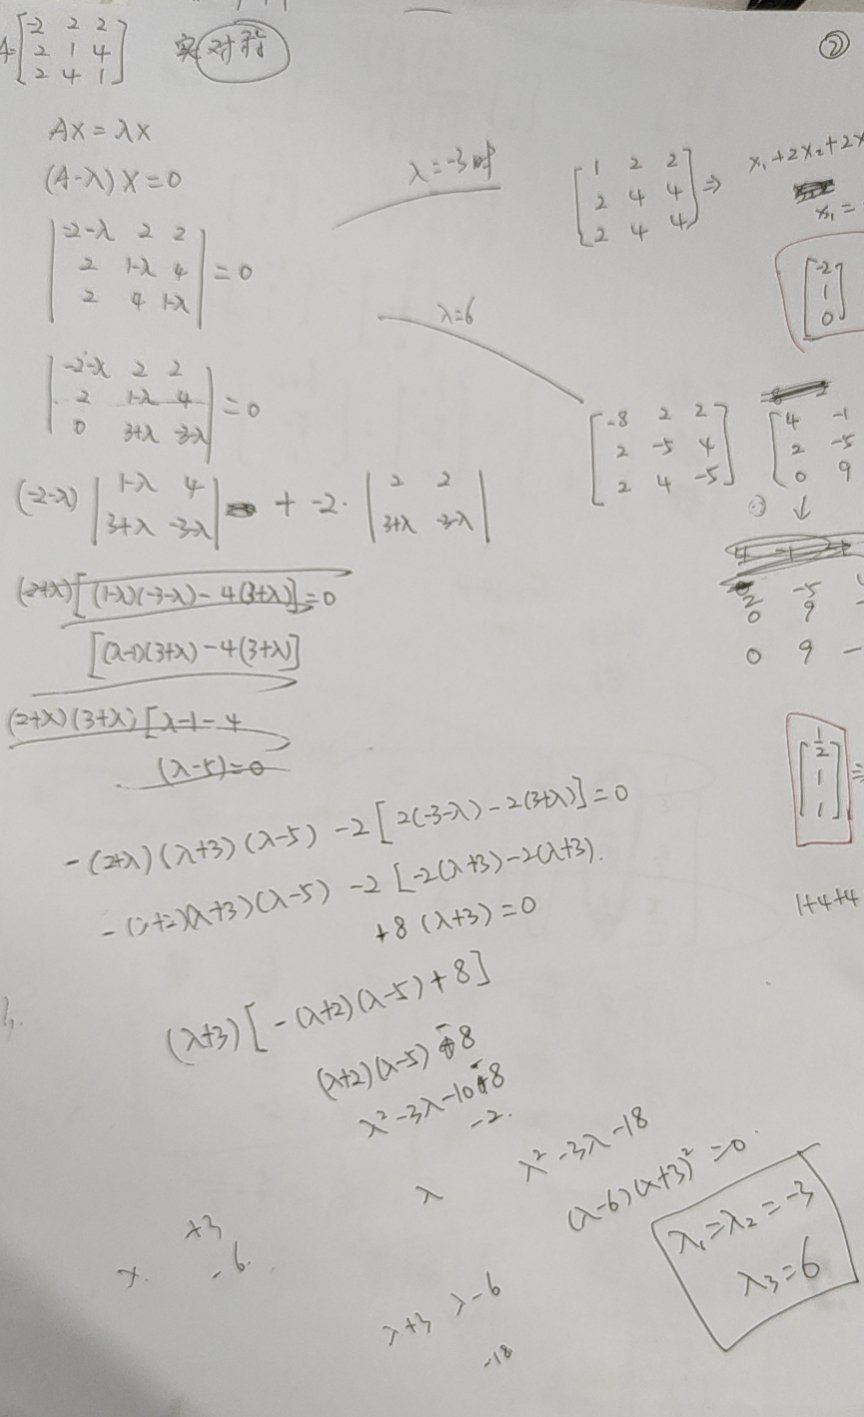 A [-2 2 2
2 1 4
2 4 1] 实对称
②
Ax = λx
(A-λ)x = 0
|-2-λ 2 2
2 1-λ 4
2 4 1-λ| = 0
|-2-λ 2 2
2 1-λ 4
0 3+λ -3-λ| = 0
(-2-λ) |1-λ 4
3+λ -3-λ| + -2· |2 2
3+λ -3-λ|
(2+λ)[(1-λ)(-3-λ) - 4(3+λ)] = 0
[(λ-1)(3+λ) - 4(3+λ)]
(2+λ)(3+λ)[λ-1-4
(λ-5) = 0
-(2+λ)(λ+3)(λ-5) -2[2(-3-λ) - 2(3+λ)] = 0
-(λ+2)(λ+3)(λ-5) -2[-2(λ+3) - 2(λ+3).
+8(λ+3) = 0
(λ+3)[-(λ+2)(λ-5)+8]
(λ+2)(λ-5) - 8
λ²-3λ-10-8
-2.
λ
λ²-3λ-18
(λ-6)(λ+3)² = 0
λ₁=λ₂=-3
λ₃=6
+3
-6
λ+3 λ-6
-18
λ=-3时
[1 2 2
2 4 4
2 4 4] ⇒ x₁+2x₂+2x
x₁=
[-2
1
0]
λ=6
[-8 2 2
2 -5 4
2 4 -5]
[4 -1
2 -5
0 9
↓
4 -1
2 -5
0 9
0 9 -
[1/2
1
1] ⇒
1+4+4